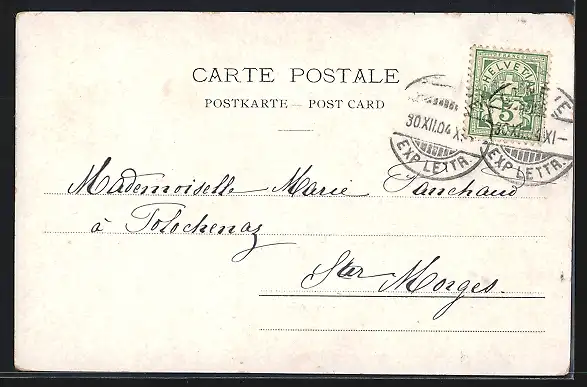 CARTE POSTALE
POSTKARTE — POST CARD
HELVETIA
5
30 XII.04 XI
EXP. LETTR.
30 XII.04 XI
EXP. LETTR.
Mademoiselle Marie Panchaud
à Tolochenaz
Sur Morges.